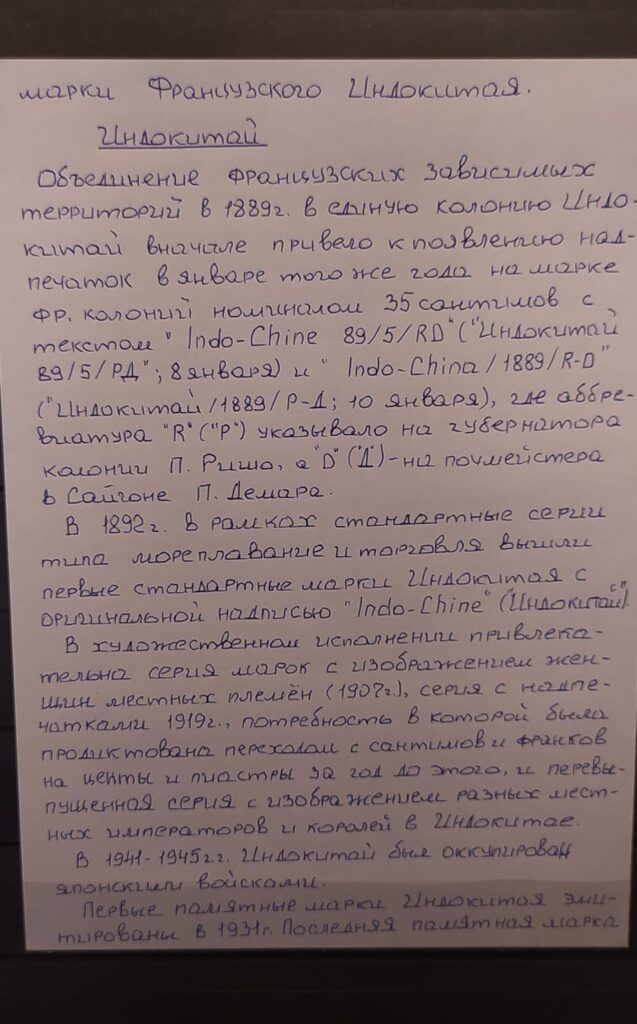 марки Французского Индокитая.
Индокитай
Объединение французских зависимых
территорий в 1889г. в единую колонию Индо-
китай вначале привело к появлению над-
печаток в январе того же года на марке
фр. колоний номиналом 35 сантимов с
текстом " Indo-Chine 89/5/RD" ("Индокитай
89/5/РД"; 8 января) и " Indo-China/1889/R-D"
("Индокитай/1889/Р-Д; 10 января), где аббре-
виатура "R" ("Р") указывало на губернатора
колонии П. Ришо, а "D" ("Д")-на почмейстера
в Сайгоне П. Демара.
В 1892г. в рамках стандартные серии
типа мореплавание и торговля вышли
первые стандартные марки Индокитая с
оригинальной надписью "Indo-Chine" ("Индокитай").
В художественном исполнении привлека-
тельна серия марок с изображением жен-
щин местных племён (1907г.), серия с надпе-
чатками 1919г., потребность в которой была
продиктована переходом с сантимов и франков
на центы и пиастры за год до этого, и перевы-
пущенная серия с изображением разных мест-
ных императоров и королей в Индокитае.
В 1941-1945г.г. Индокитай был оккупирован
японскими войсками.
Первые памятные марки Индокитая эми-
тированы в 1931г. Последняя памятная марка